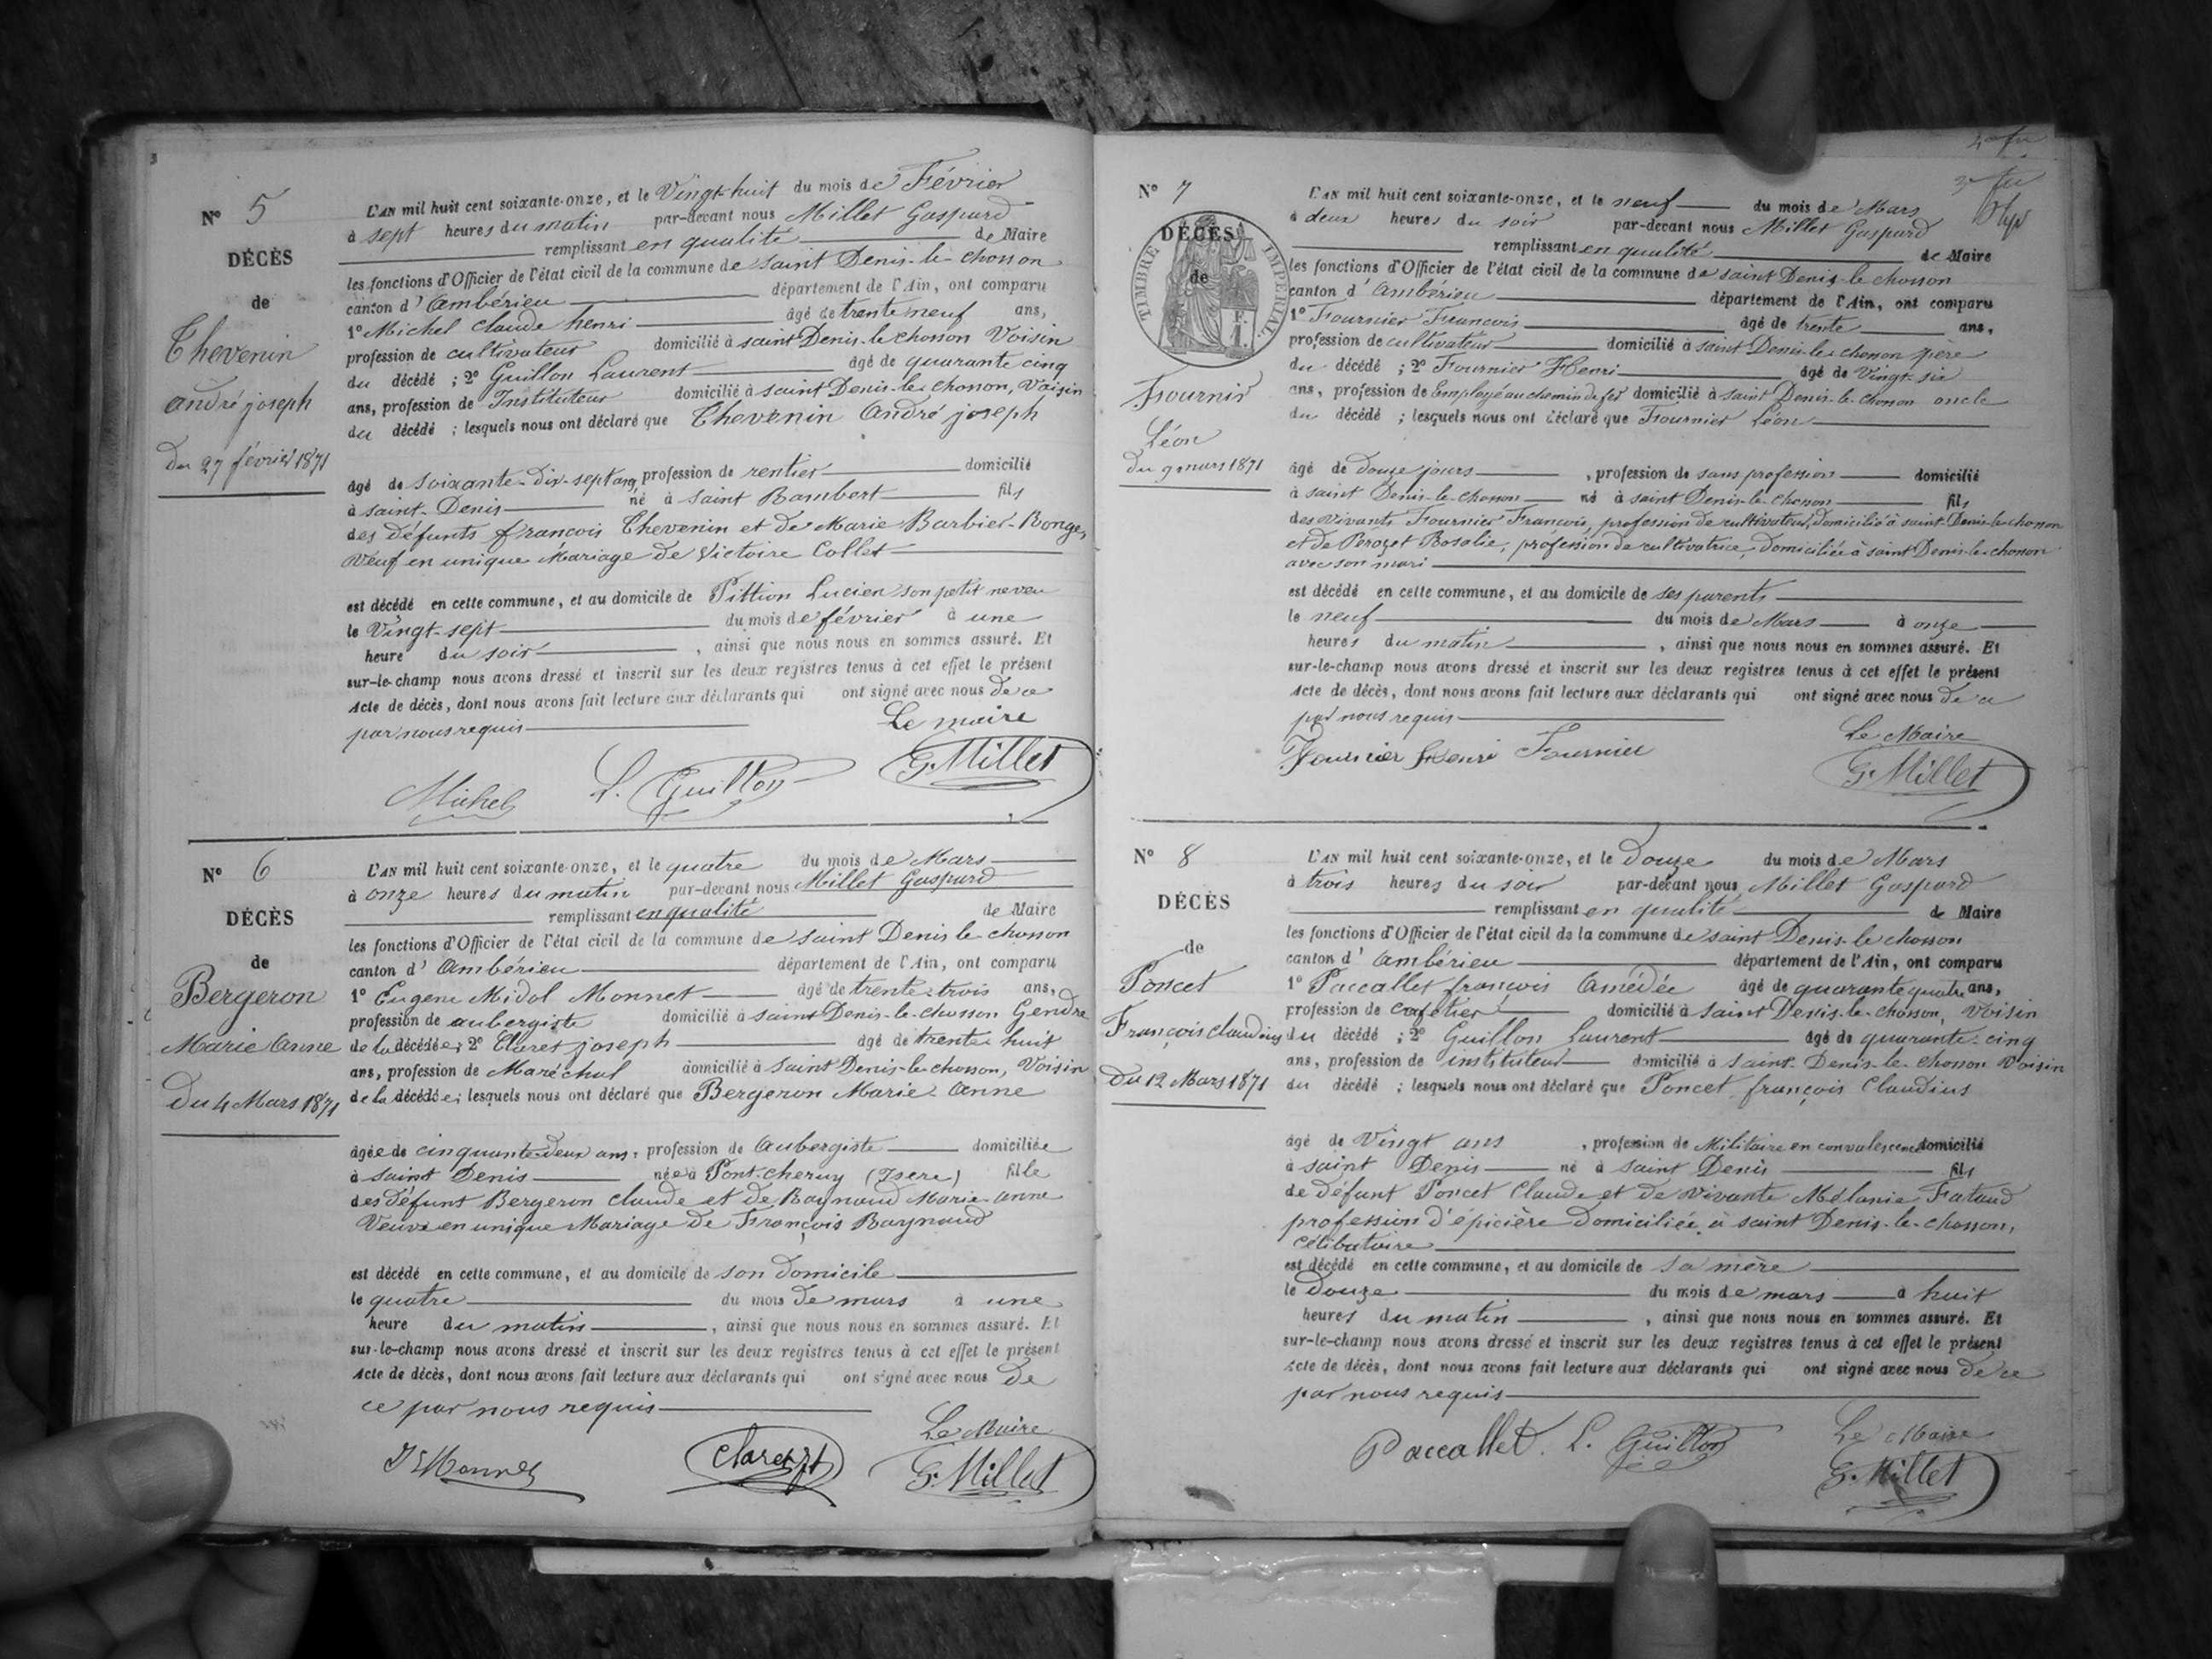 N° 5
DÉCÈS
de
Thevenin
André joseph
Du 27 février 1871
L'AN mil huit cent soixante-onze, et le Vingt-huit du mois de Février
à sept heures du matin par-devant nous Millet Gaspard
remplissant en qualité de Maire
les fonctions d'Officier de l'état civil de la commune de saint Denis-le-chosson
canton d'Ambérieu département de l'Ain, ont comparu
1° Michel claude henri âgé de trente neuf ans,
profession de cultivateur domicilié à saint Denis-le chosson Voisin
du décédé ; 2° Guillon Laurent âgé de quarante cinq
ans, profession de Instituteur domicilié à saint Denis-le-chosson, Voisin
du décédé ; lesquels nous ont déclaré que Thevenin André joseph
âgé de soixante-dix-sept ans, profession de rentier domicilié
à saint-Denis né à saint Rambert fils
des défunts françois Thevenin et de Marie Barbier-Ronge,
Veuf en unique Mariage de Victoire Collet
est décédé en cette commune, et au domicile de Pittion Lucien son petit neveu
le Vingt-sept du mois de février à une
heure du soir , ainsi que nous nous en sommes assuré. Et
sur-le-champ nous avons dressé et inscrit sur les deux registres tenus à cet effet le présent
Acte de décès, dont nous avons fait lecture aux déclarants qui ont signé avec nous de ce
par nous requis
Le maire
Michel L. Guillon G. Millet
N° 6
DÉCÈS
de
Bergeron
Marie Anne
Du 4 Mars 1871
L'AN mil huit cent soixante-onze, et le quatre du mois de Mars
à onze heures du matin par-devant nous Millet Gaspard
remplissant en qualité de Maire
les fonctions d'Officier de l'état civil de la commune de saint Denis le chosson
canton d'Ambérieu département de l'Ain, ont comparu
1° Eugene Midol Monnet âgé de trente-trois ans,
profession de aubergiste domicilié à saint Denis-le-chosson Gendre
de la décédée ; 2° Claret joseph âgé de trente huit
ans, profession de Maréchal domicilié à saint Denis-le-chosson, Voisin
de la décédée ; lesquels nous ont déclaré que Bergeron Marie-Anne
âgée de cinquante-deux ans, profession de Aubergiste domiciliée
à saint Denis née à Pont-cheruy (Isere) fille
des défunt Bergeron claude et de Raynaud Marie-anne
Veuve en unique Mariage de François Raynaud
est décédé en cette commune, et au domicile de son domicile
le quatre du mois de mars à une
heure du matin , ainsi que nous nous en sommes assuré. Et
sur-le-champ nous avons dressé et inscrit sur les deux registres tenus à cet effet le présent
Acte de décès, dont nous avons fait lecture aux déclarants qui ont signé avec nous de
ce par nous requis
Le Maire
Monnet Claret G. Millet
N° 7
DÉCÈS
de
TIMBRE IMPÉRIAL
F.
1.
Fournir
Léon
Du 9 mars 1871
L'AN mil huit cent soixante-onze, et le neuf du mois de Mars
à deux heures du soir par-devant nous Millet Gaspard
remplissant en qualité de Maire
les fonctions d'Officier de l'état civil de la commune de saint Denis-le-chosson
canton d'Ambérieu département de l'Ain, ont comparu
1° Fournier Francois âgé de trente ans,
profession de cultivateur domicilié à saint Denis-le-chosson père
du décédé ; 2° Fournier Henri âgé de Vingt-six
ans, profession de Employé au chemin de fer domicilié à saint Denis-le-chosson oncle
du décédé ; lesquels nous ont déclaré que Fournier Léon
âgé de douze jours , profession de sans profession domicilié
à saint Denis-le-chosson né à saint Denis-le-chosson fils
des vivants Fournier Francois, profession de cultivateur, domicilié à saint-Denis-le-chosson
et de Perozet Rosalie, profession de cultivatrice, domiciliée à saint Denis-le-chosson
avec son mari
est décédé en cette commune, et au domicile de ses parents
le neuf du mois de Mars à onze
heures du matin , ainsi que nous nous en sommes assuré. Et
sur-le-champ nous avons dressé et inscrit sur les deux registres tenus à cet effet le présent
Acte de décès, dont nous avons fait lecture aux déclarants qui ont signé avec nous de ce
par nous requis
Le Maire
Fournier Henri Fournier G. Millet
N° 8
DÉCÈS
de
Poncet
François Claudius
Du 12 Mars 1871
L'AN mil huit cent soixante-onze, et le Douze du mois de Mars
à trois heures du soir par-devant nous Millet Gaspard
remplissant en qualité de Maire
les fonctions d'Officier de l'état civil de la commune de saint Denis-le chosson
canton d'Ambérieu département de l'Ain, ont comparu
1° Paccallet françois Amédée âgé de quarante quatre ans,
profession de cafetier domicilié à saint Denis-le-chosson, Voisin
du décédé ; 2° Guillon Laurent âgé de quarante-cinq
ans, profession de instituteur domicilié à saint-Denis-le-chosson Voisin
du décédé ; lesquels nous ont déclaré que Poncet françois Claudius
âgé de Vingt ans , profession de Militaire en convalescence domicilié
à saint Denis né à saint Denis fils
de défunt Poncet Claude et de vivante Mélanie Fataud
profession d'épicière Domiciliée à saint Denis-le-chosson,
célibataire
est décédé en cette commune, et au domicile de sa mère
le Douze du mois de mars à huit
heures du matin , ainsi que nous nous en sommes assuré. Et
sur-le-champ nous avons dressé et inscrit sur les deux registres tenus à cet effet le présent
Acte de décès, dont nous avons fait lecture aux déclarants qui ont signé avec nous de ce
par nous requis
Le Maire
Paccallet. L. Guillon G. Millet